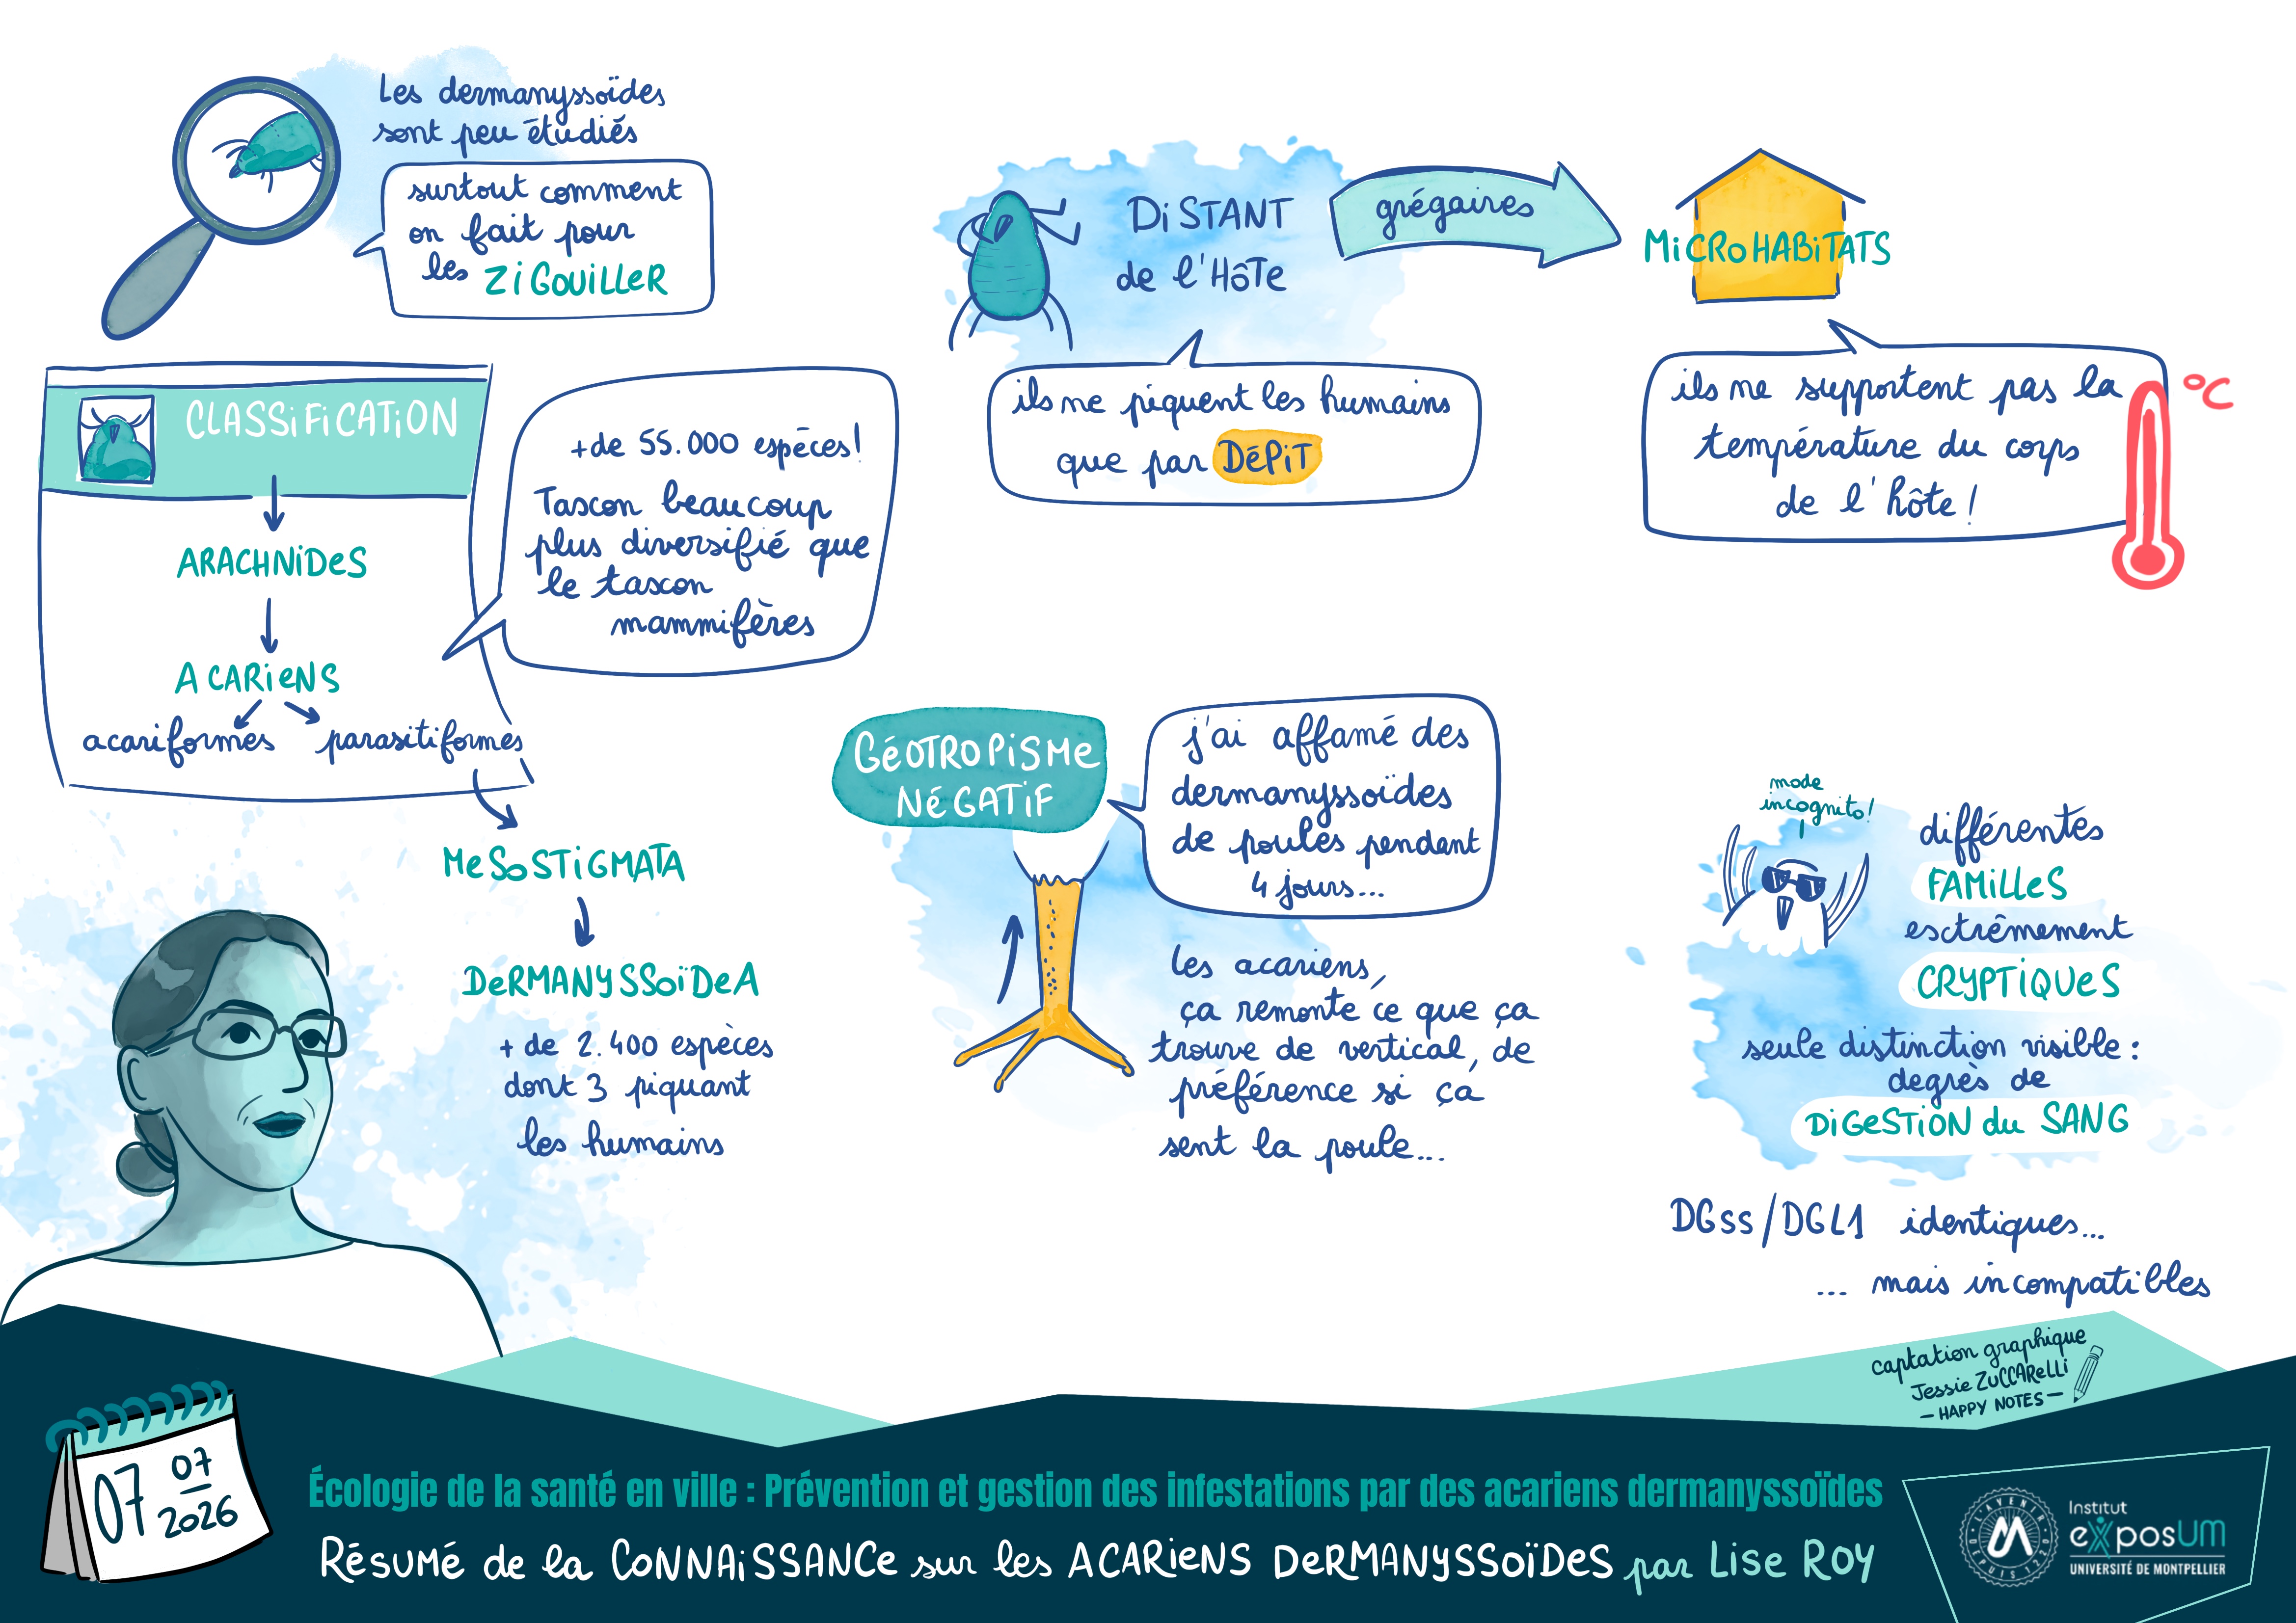 Les dermanyssoïdes
sont peu étudiés
surtout comment
on fait pour
les ZIGOUILLER
CLASSIFICATION
ARACHNIDES
ACARIENS
acariformes
parasitiformes
+ de 55.000 espèces!
Tascon beaucoup
plus diversifié que
le tascon
mammifères
MESOSTIGMATA
DERMANYSSOÏDEA
+ de 2.400 espèces
dont 3 piquant
les humains
DISTANT
de l'HÔTE
grégaires
MICROHABITATS
ils ne piquent les humains
que par DÉPIT
ils ne supportent pas la
température du corps
de l'hôte!
°C
GÉOTROPISME
NÉGATIF
j'ai affamé des
dermanyssoïdes
de poules pendant
4 jours...
les acariens,
ça remonte ce que ça
trouve de vertical, de
préférence si ça
sent la poule...
mode
incognito!
différentes
FAMILLES
esctrêmement
CRYPTIQUES
seule distinction visible:
degrès de
DIGESTION du SANG
DGss/DGL1 identiques...
... mais incompatibles
captation graphique
Jessie ZUCCARELLI
– HAPPY NOTES –
07 07
2026
Écologie de la santé en ville : Prévention et gestion des infestations par des acariens dermanyssoïdes
RÉSUMÉ de la CONNAISSANCE sur les ACARIENS DERMANYSSOÏDES par LISE ROY
L'AVENIR
DEPUIS 1220
M
Institut
exposUM
UNIVERSITÉ DE MONTPELLIER